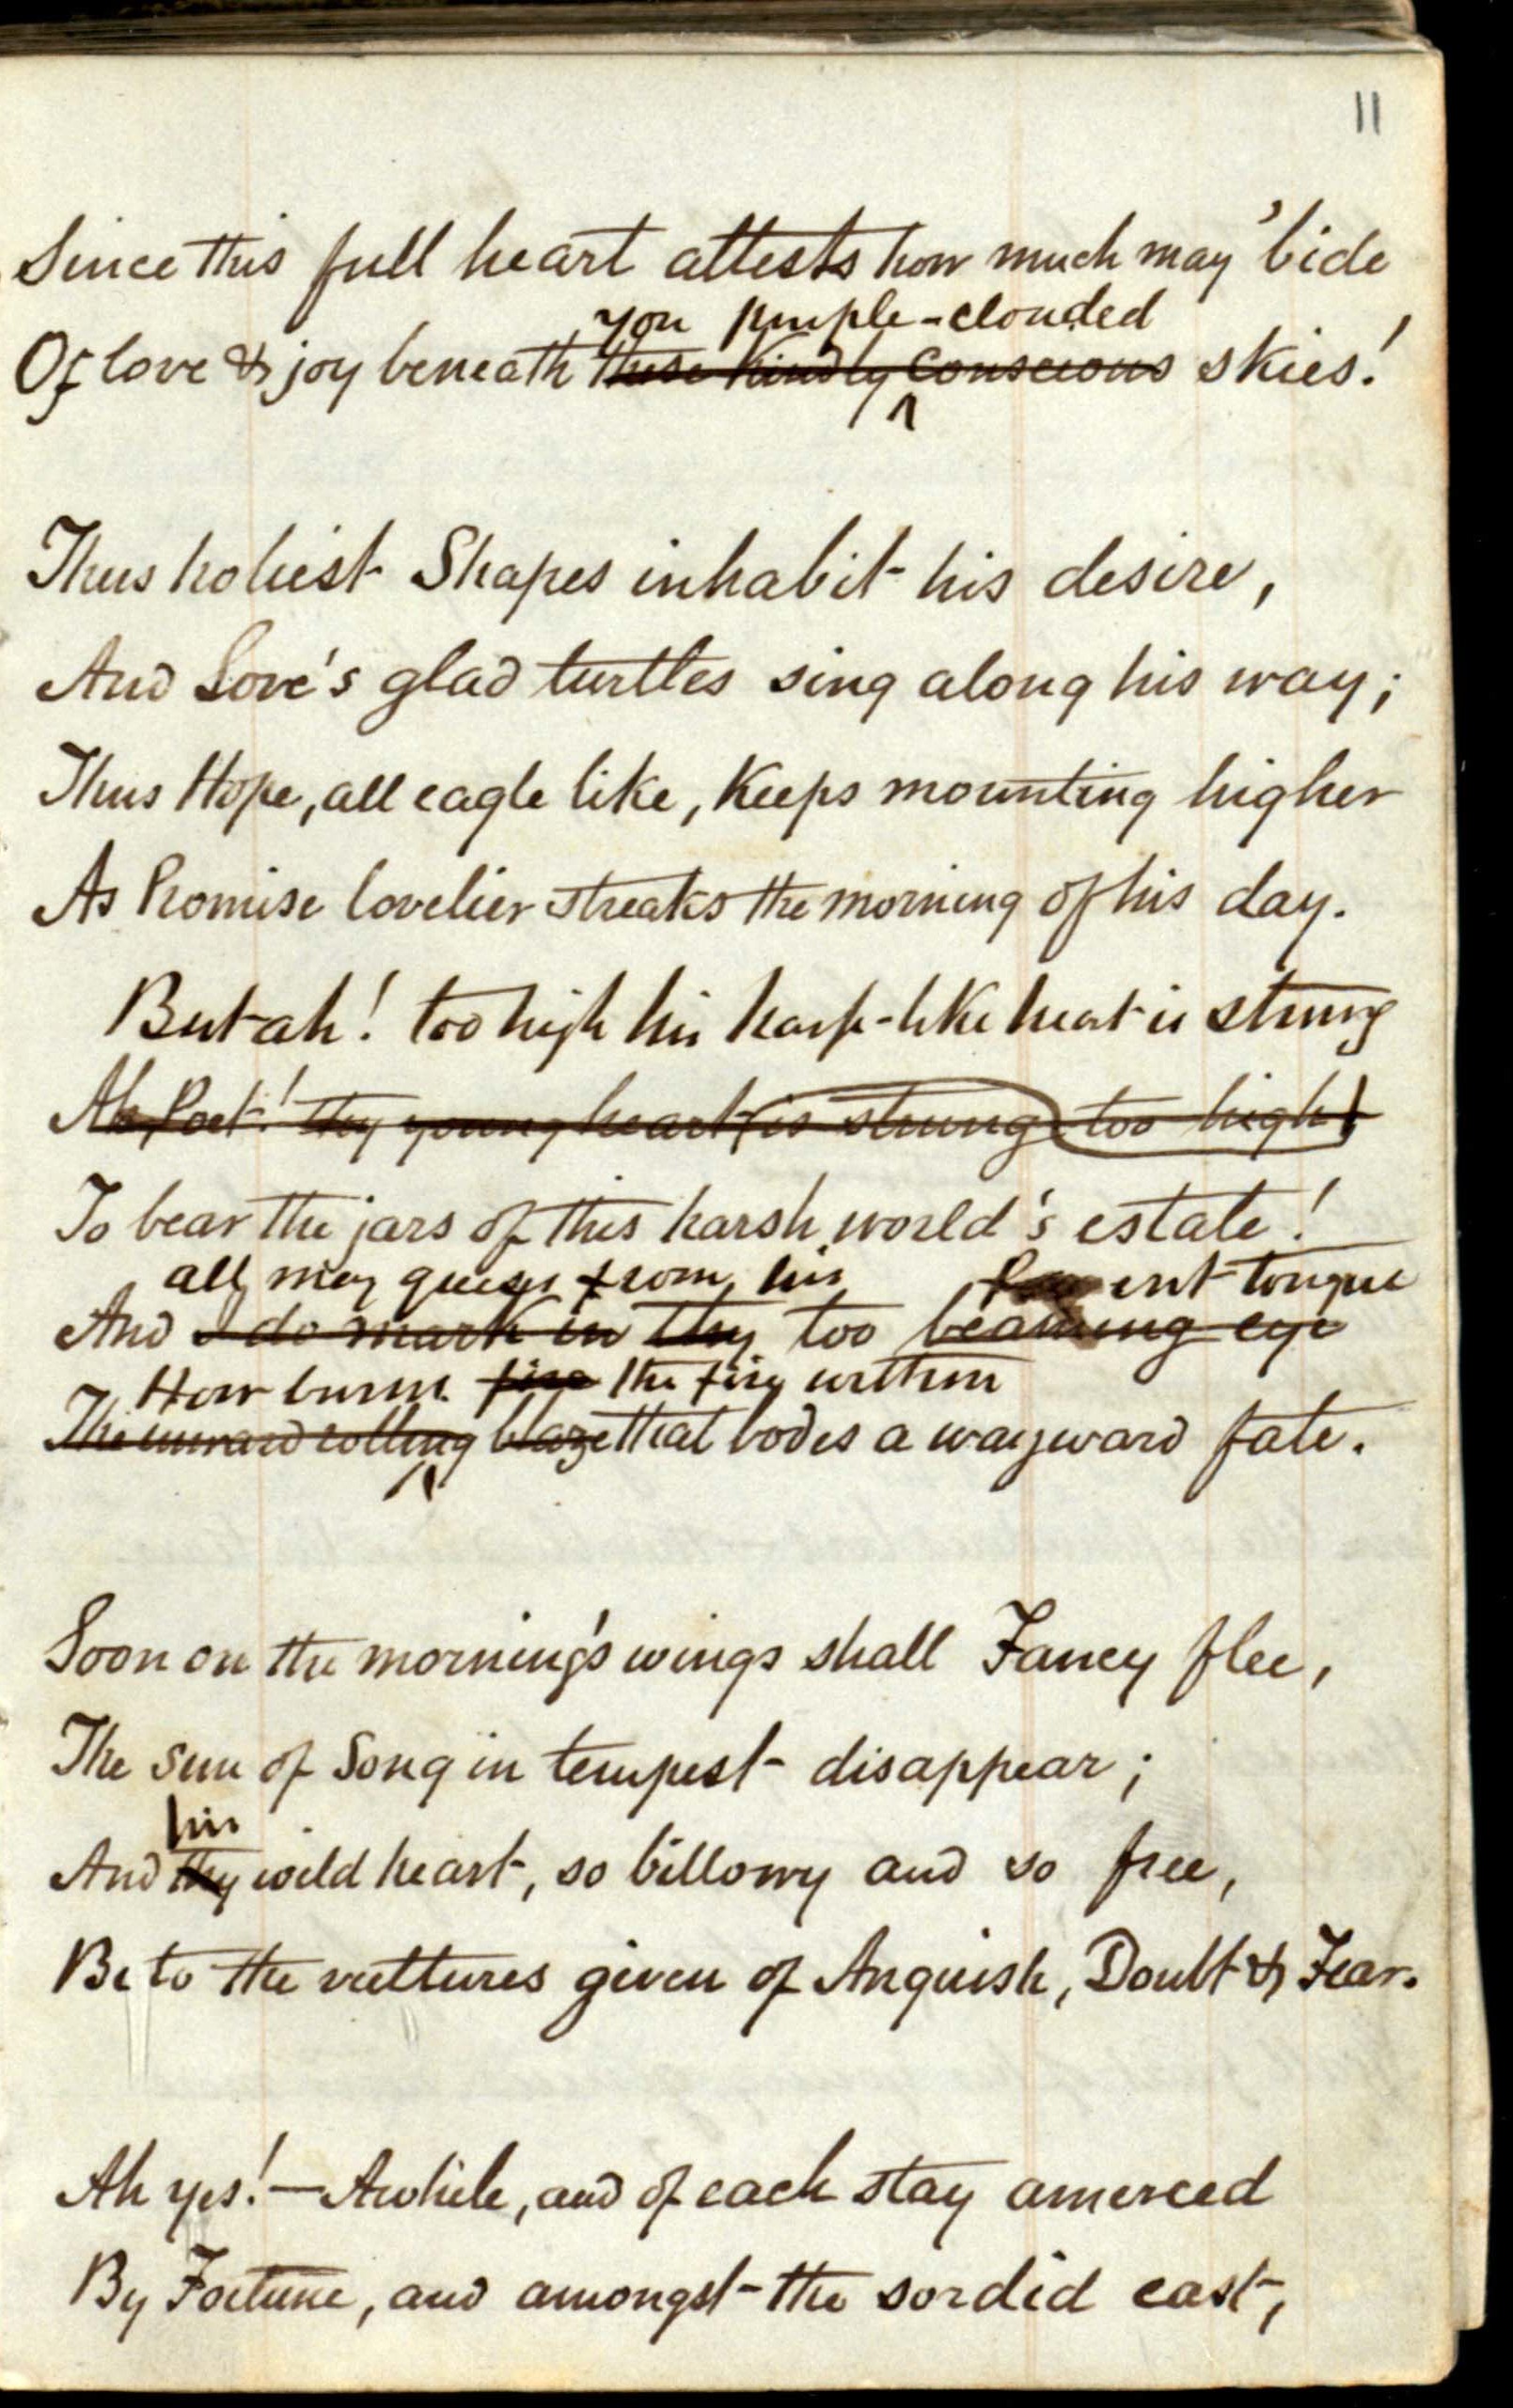 11
Since this full heart attests how much may 'bide
yon purple-clouded
Of love & joy beneath these kindly conscious skies!
Thus holiest Shapes inhabit his desire,
And Love's glad turtles sing along his way;
Thus Hope, all eagle like, Keeps mounting higher
As Promise lovelier streaks the morning of his day.
But ah! too high his harp-like heart is strung
Ah, Poet! thy young heart is strung too high!
To bear the jars of this harsh world's estate!
all may guess from his ent tongue
And I do mark in thy too beaming eye
How burns fire the fire within
The inward rolling blaze that bodes a wayward fate.
Soon on the morning's wings shall Fancy flee,
The sun of Song in tempest disappear;
his
And thy wild heart, so billowy and so free,
Be to the vultures given of Anguish, Doubt & Fear.
Ah yes!—Awhile, and of each stay amerced
By Fortune, and amongst the sordid cast,